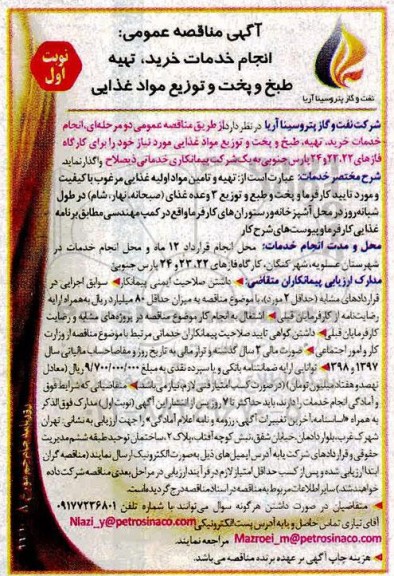 آگهی مناقصه عمومی:
انجام خدمات خرید، تهیه
طبخ و پخت و توزیع مواد غذایی
نوبت
اول
نفت و گاز پتروسینا آریا
شرکت نفت و گاز پتروسینا آریا در نظر دارد از طریق مناقصه عمومی دو مرحله‌ای، انجام
خدمات خرید، تهیه، طبخ و پخت و توزیع مواد غذایی مورد نیاز خود را برای کارگاه
فازهای ۲۲،۲۳ و ۲۴ پارس جنوبی به یک شرکت پیمانکاری خدماتی ذیصلاح واگذار نماید.
شرح مختصر خدمات: عبارت است از: تهیه و تامین مواد اولیه غذایی مرغوب با کیفیت
و مورد تایید کارفرما و پخت و طبع و توزیع ۳ وعده غذای (صبحانه، نهار، شام) در طول
شبانه روز در محل آشپزخانه و رستوران‌های کارفرما واقع در کمپ مهندسی مطابق برنامه
غذایی کارفرما و پیوست‌های شرح کار
محل و مدت انجام خدمات: محل انجام قرارداد ۱۲ ماه و محل انجام خدمات در
شهرستان عسلویه، شهر کنگان، کارگاه فازهای ۲۲،۲۳ و ۲۴ پارس جنوبی
مدارک ارزیابی پیمانکاران متقاضی: داشتن صلاحیت ایمنی پیمانکار سوابق اجرایی در
قراردادهای مشابه (حداقل ۲ مورد)، با موضوع مناقصه به میزان حداقل ۸۰ میلیارد ریال به همراه ارایه
رضایت‌نامه از کارفرمایان قبلی اشتغال به انجام کار موضوع مناقصه در پروژه‌های مشابه و رضایت
کارفرمایان قبلی داشتن گواهی تایید صلاحیت پیمانکاران خدماتی مرتبط با موضوع مناقصه از وزارت
کار و امور اجتماعی صورت مالی ۲ سال گذشته و تراز مالی به تاریخ روز و مفاصاحساب مالیاتی سال
۱۳۹۷ و ۱۳۹۸ توانایی ارایه ضمانتنامه بانکی و یا سپرده نقدی به مبلغ ۹/۷۰۰/۰۰۰/۰۰۰ ریال (معادل
نهصد و هفتاد میلیون تومان) (در صورت کسب امتیاز فنی لازم، نیاز می‌باشد) متقاضیانی که شرایط فوق
و آمادگی انجام خدمات را دارند، باید حداکثر تا ۷ روز پس از انتشار این آگهی (نوبت اول) مدارک فوق الذکر
به همراه «اساسنامه، آخرین تغییرات آگهی، رزومه و نامه اعلام آمادگی» را جهت ارزیابی به نشانی: تهران
شهرک غرب، بلوار دادمان، خیابان شفق، نبش کوچه آفتاب، پلاک ۲، ساختمان توحید طبقه ششم مدیریت
حقوقی و قراردادهای شرکت و یا به آدرس ایمیل‌های ذیل به صورت الکترونیک ارسال نمایند (مناقصه گران
ابتدا ارزیابی شده و پس از کسب حداقل امتیاز لازم در فرآیند ارزیابی در مراحل بعدی مناقصه شرکت داده
خواهند شد.) سایر اطلاعات مربوط به مناقصه در اسناد مناقصه درج گردیده است.
متقاضیان در صورت داشتن هرگونه سوال می‌توانند با شماره تلفن ۰۹۱۷۷۲۳۶۸۰۱
آقای نیازی تماس حاصل و یا به آدرس پست الکترونیکی Niazi_y@petrosinaco.com
Mazroei_m@petrosinaco.com مراجعه نمایند.
هزینه چاپ آگهی بر عهده برنده مناقصه می‌باشد.